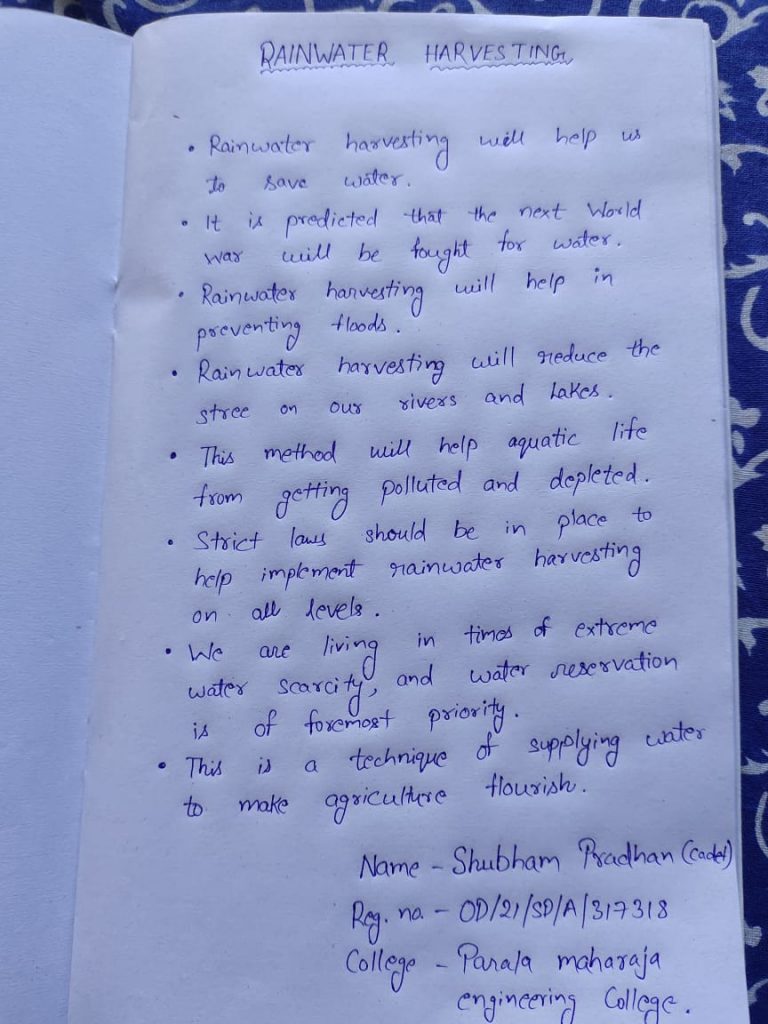 RAINWATER HARVESTING
• Rainwater harvesting will help us
to save water.
• It is predicted that the next World
war will be fought for water.
• Rainwater harvesting will help in
preventing floods.
• Rainwater harvesting will reduce the
stree on our rivers and Lakes.
• This method will help aquatic life
from getting polluted and depleted.
• Strict laws should be in place to
help implement rainwater harvesting
on all levels.
• We are living in times of extreme
water scarcity, and water reservation
is of foremost priority.
• This is a technique of supplying water
to make agriculture flourish.
Name - Shubham Pradhan (Cadet)
Reg. no. - OD/21/SD/A/317318
College - Parala maharaja
engineering College.